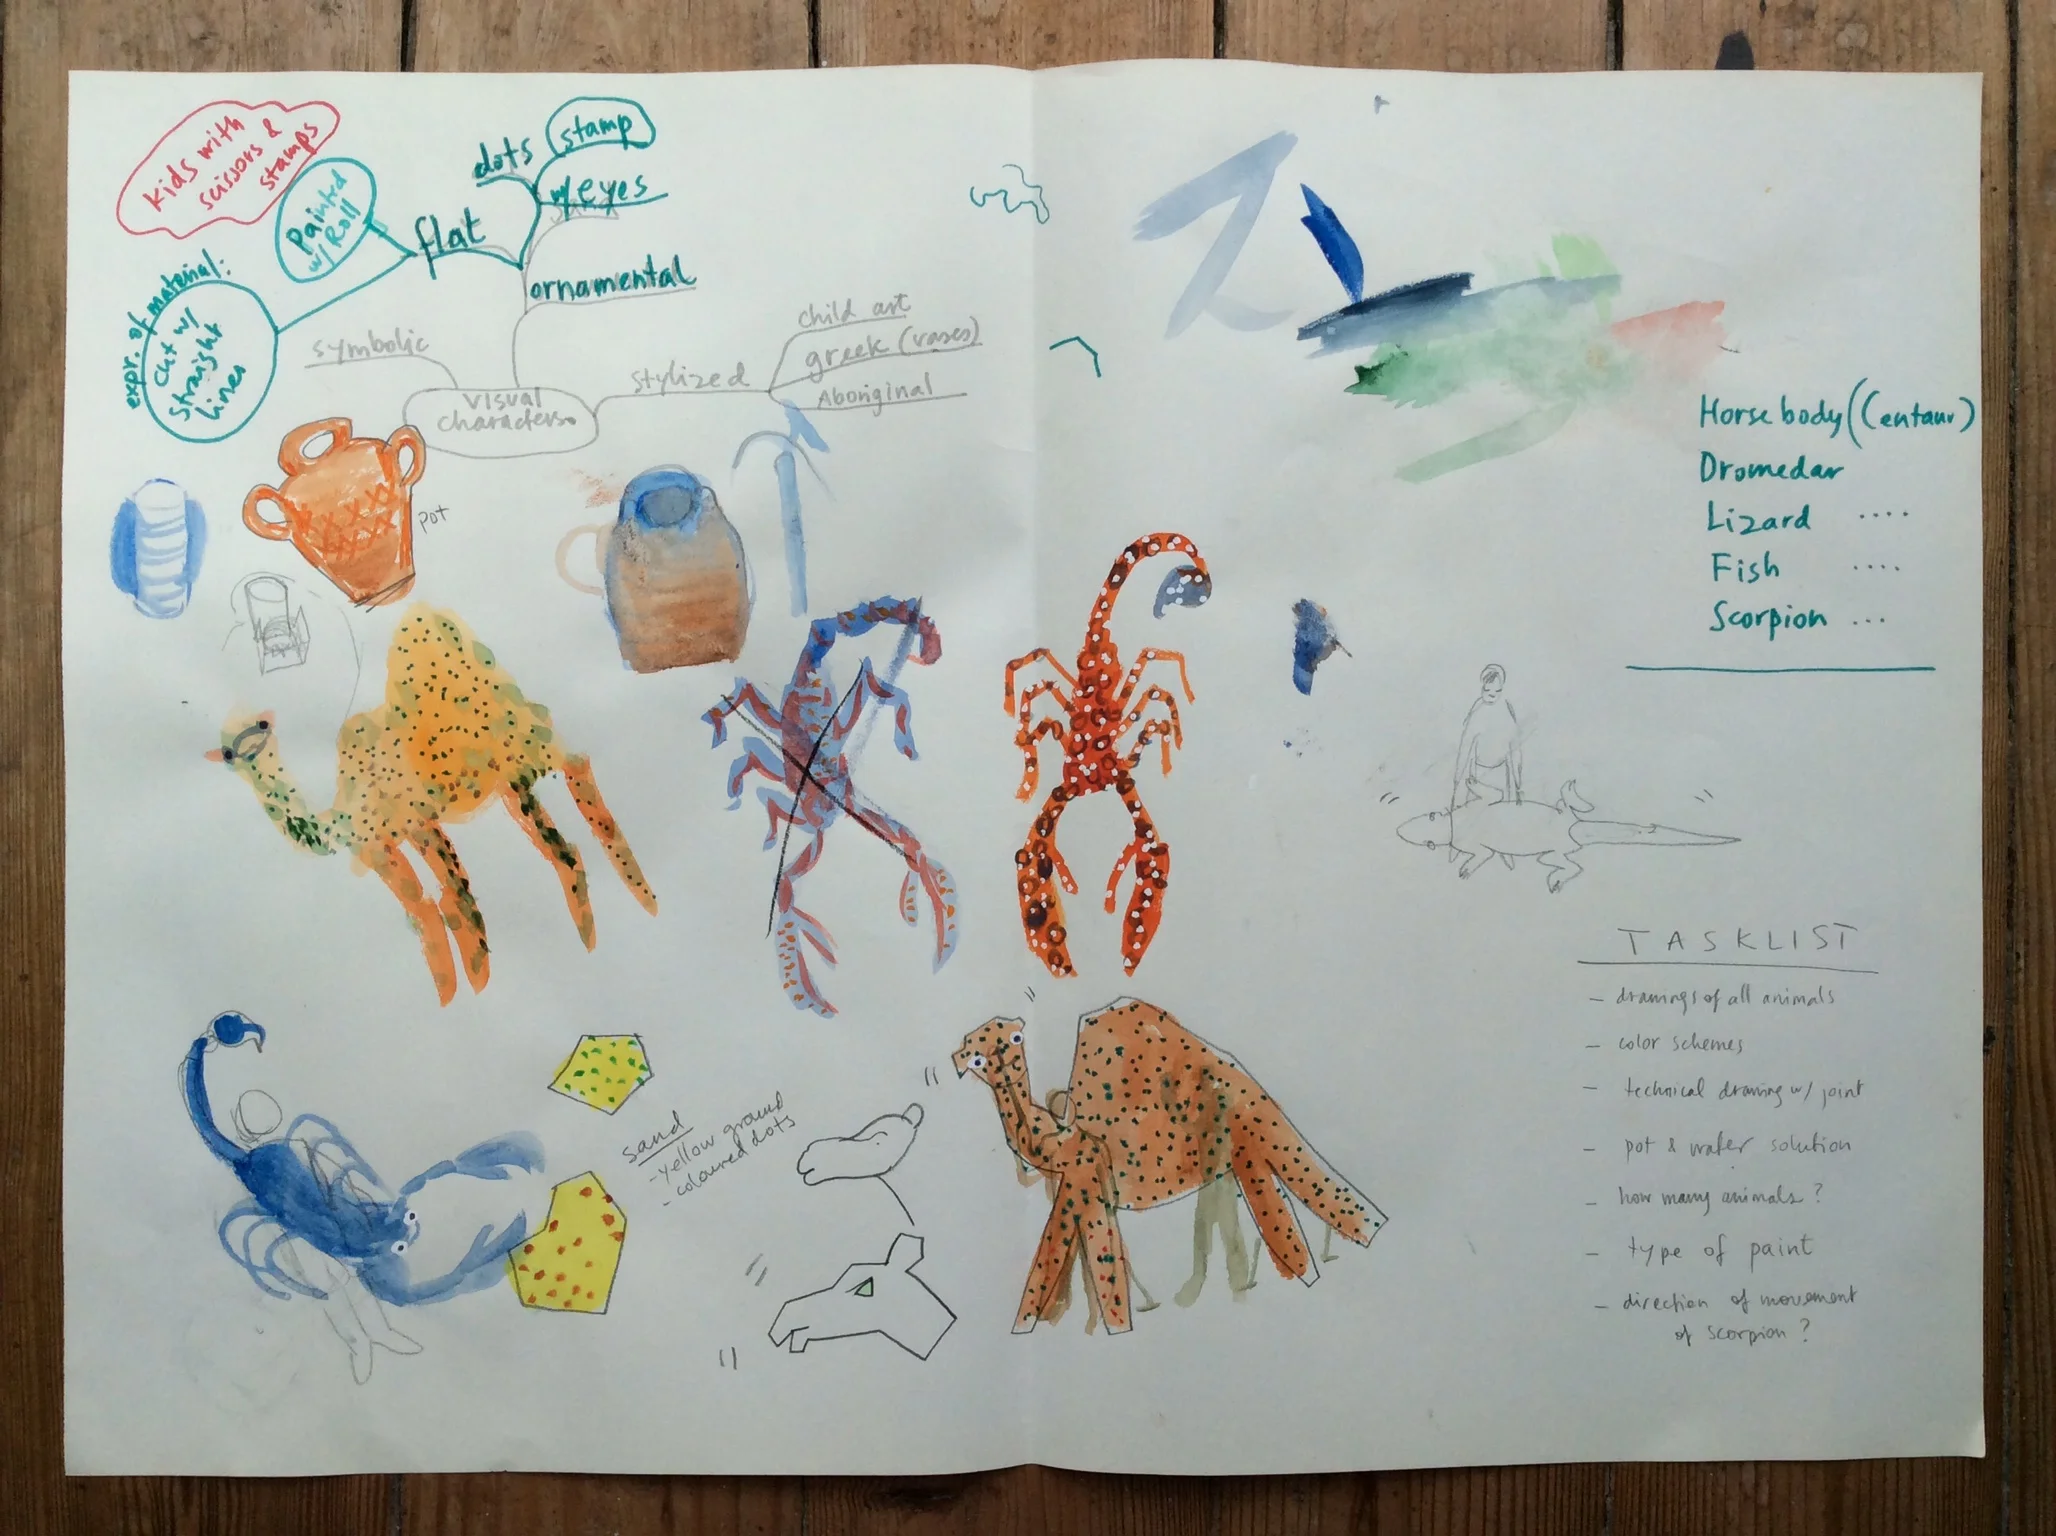 kids with
scissors &
stamps
Painted
w/ Roll
expr. of material:
cut w/
straight
lines
flat
dots
stamp
w/ eyes
ornamental
symbolic
visual
characters
stylized
child art
greek (vases)
Aboriginal
pot
Horse body (Centaur)
Dromedar
Lizard ....
Fish ....
Scorpion ...
TASKLIST
- drawings of all animals
- color schemes
- technical drawing w/ joint
- pot & water solution
- how many animals?
- type of paint
- direction of movement
of scorpion?
sand
- yellow ground
- coloured dots